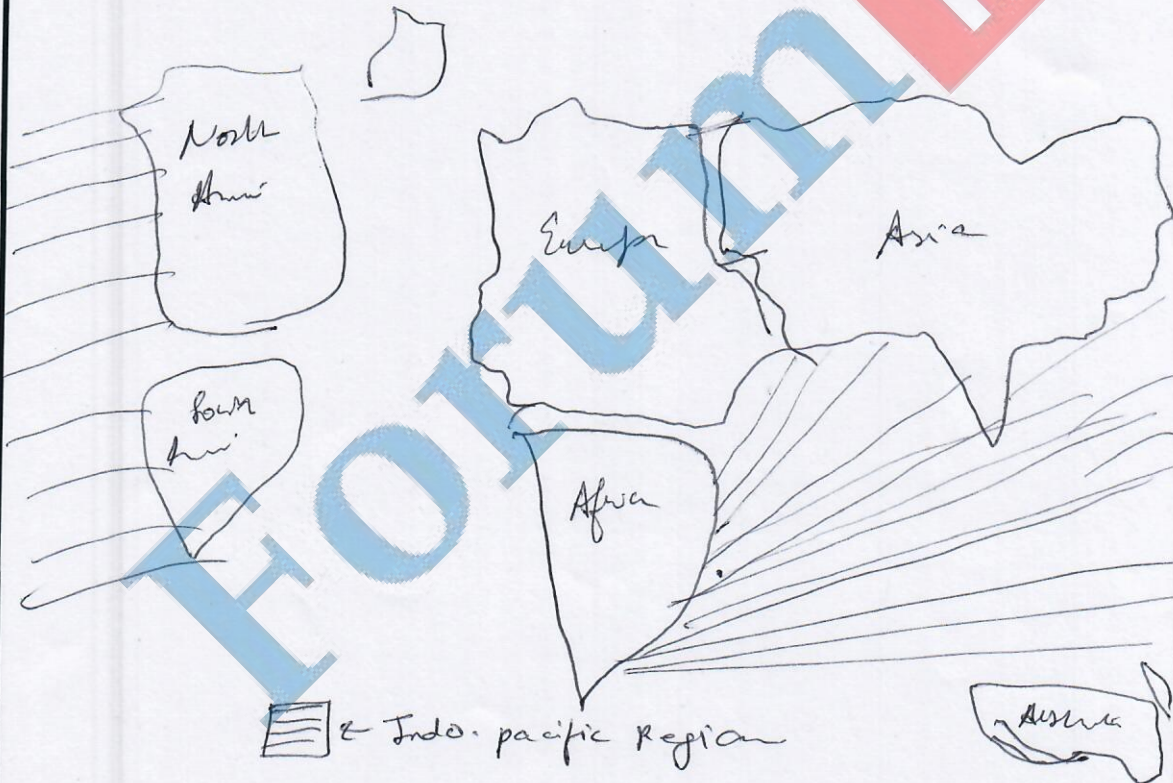 North
Ameri
South
Ameri
Europe
Asia
Africa
Australia
= Indo-pacific Region
Forum